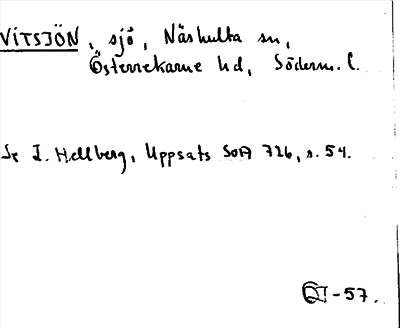 VITSJÖN, sjö, Näshulta sn,
Österrekarne hd, Söderm. l.
Se I. Hellberg, Uppsats SOA 726, s. 54.
-57.